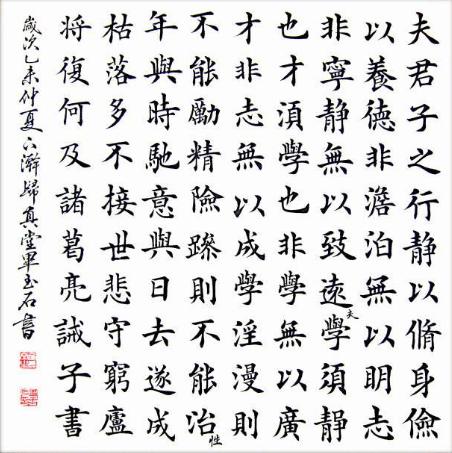 夫君子之行静以脩身儉
以養德非澹泊無以明志
非寧静無以致遠夫學須静
也才湏學也非學無以廣
才非志無以成學淫漫則
不能勵精險躁則不能冶性
年與時馳意與日去遂成
枯落多不接世悲守窮廬
将復何及諸葛亮誡子書
歲次乙未仲夏歸真堂畢玉石書